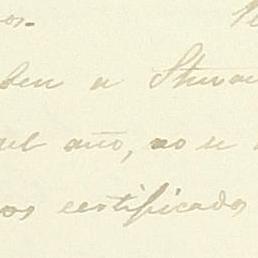 os.
ben a Stua
uel año, no se
os certificados